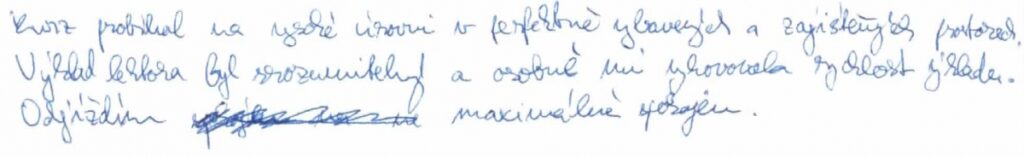 Kurz probíhal na vysoké úrovni v perfektně vybavených a zajištěných prostorech.
Výklad lektora byl srozumitelný a osobně mi vyhovovala rychlost výkladu.
Odjíždím maximálně spokojen.